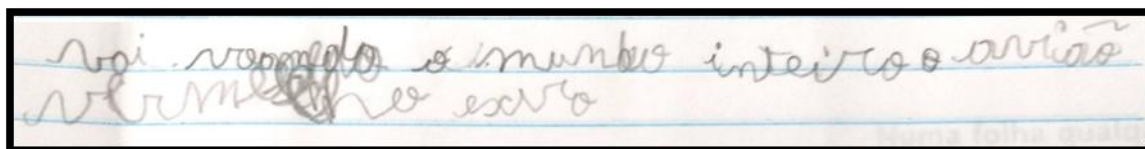 vai voamdo o mumbo inteiro o avião
vermelho escvo
Numa folha qualq